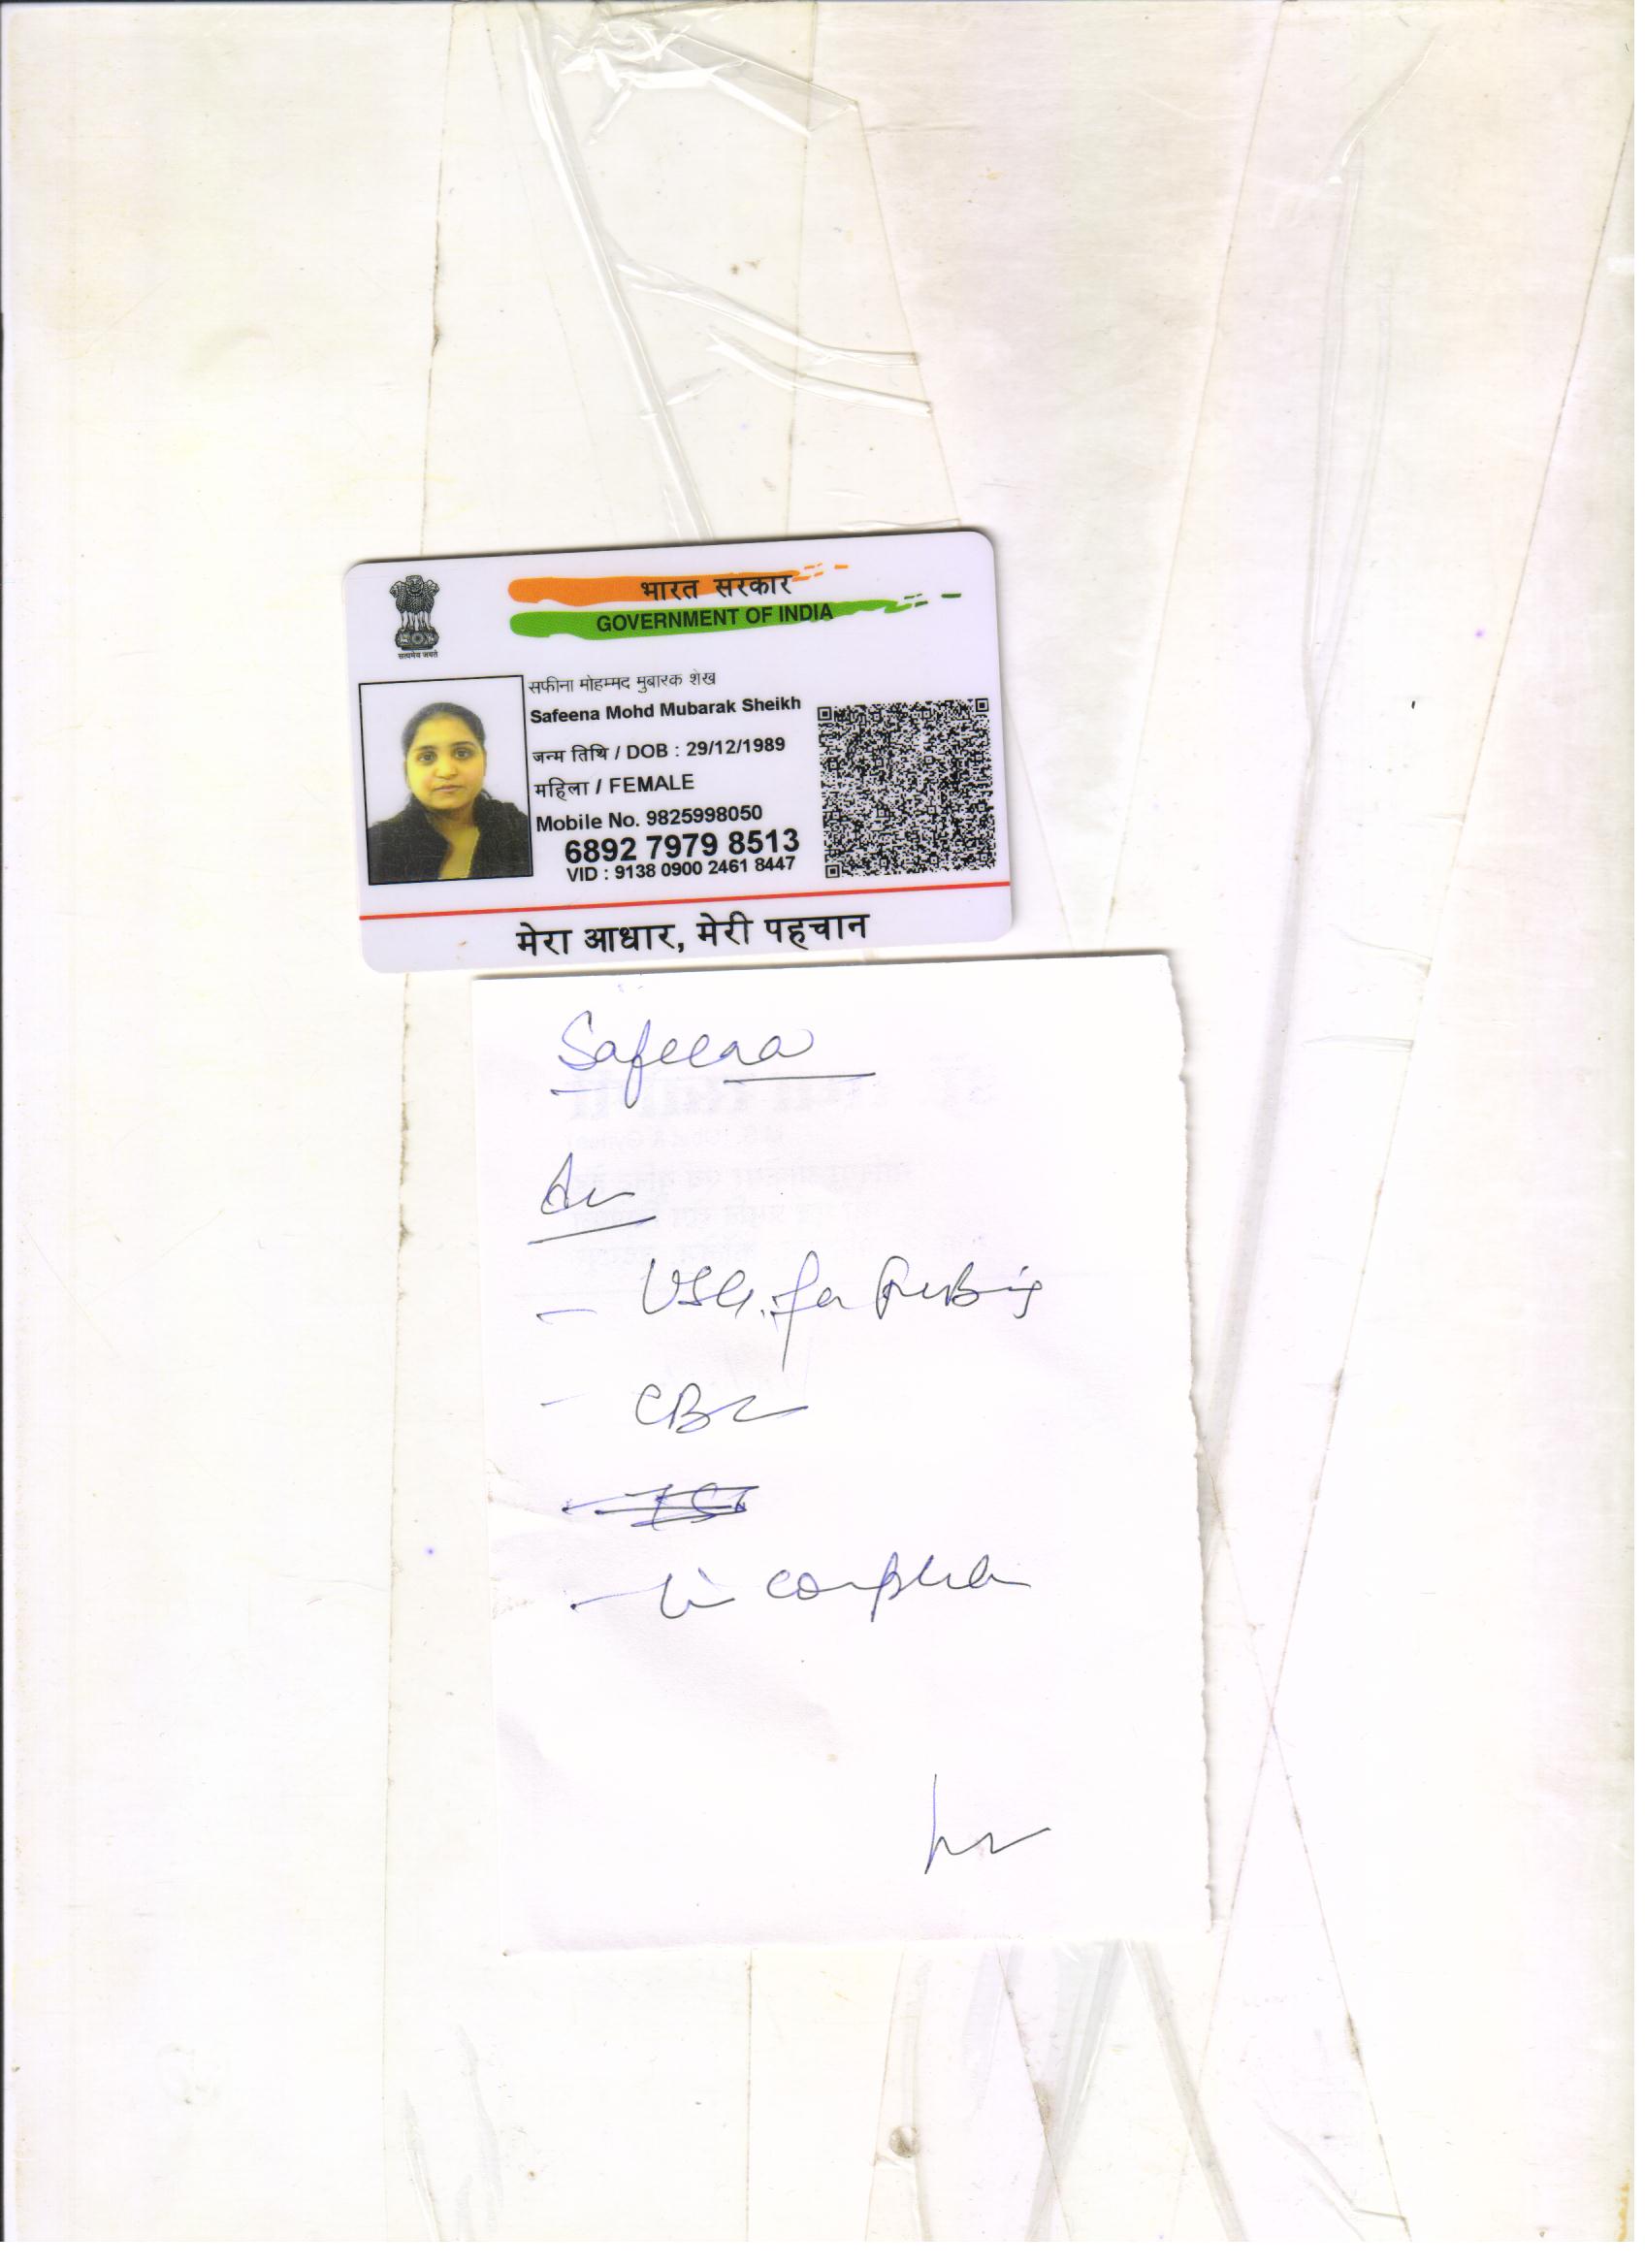 भारत सरकार
GOVERNMENT OF INDIA
सत्यमेव जयते
सफीना मोहम्मद मुबारक शेख
Safeena Mohd Mubarak Sheikh
जन्म तिथि / DOB : 29/12/1989
महिला / FEMALE
Mobile No. 9825998050
6892 7979 8513
VID : 9138 0900 2461 8447
मेरा आधार, मेरी पहचान
Safeena
Adv
- USG. for
- CBC